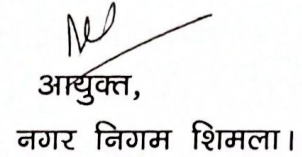 आयुक्त,
नगर निगम शिमला।